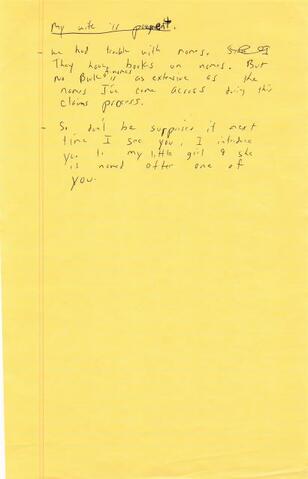 My wife is pregnant.
- we had trouble with names.
They have books on names. But
no Book of names is as extensive as the
names I've come across during this
claims process.
- So don't be surprised if next
time I see you, I introduce
you to my little girl & she
is named after one of
you.